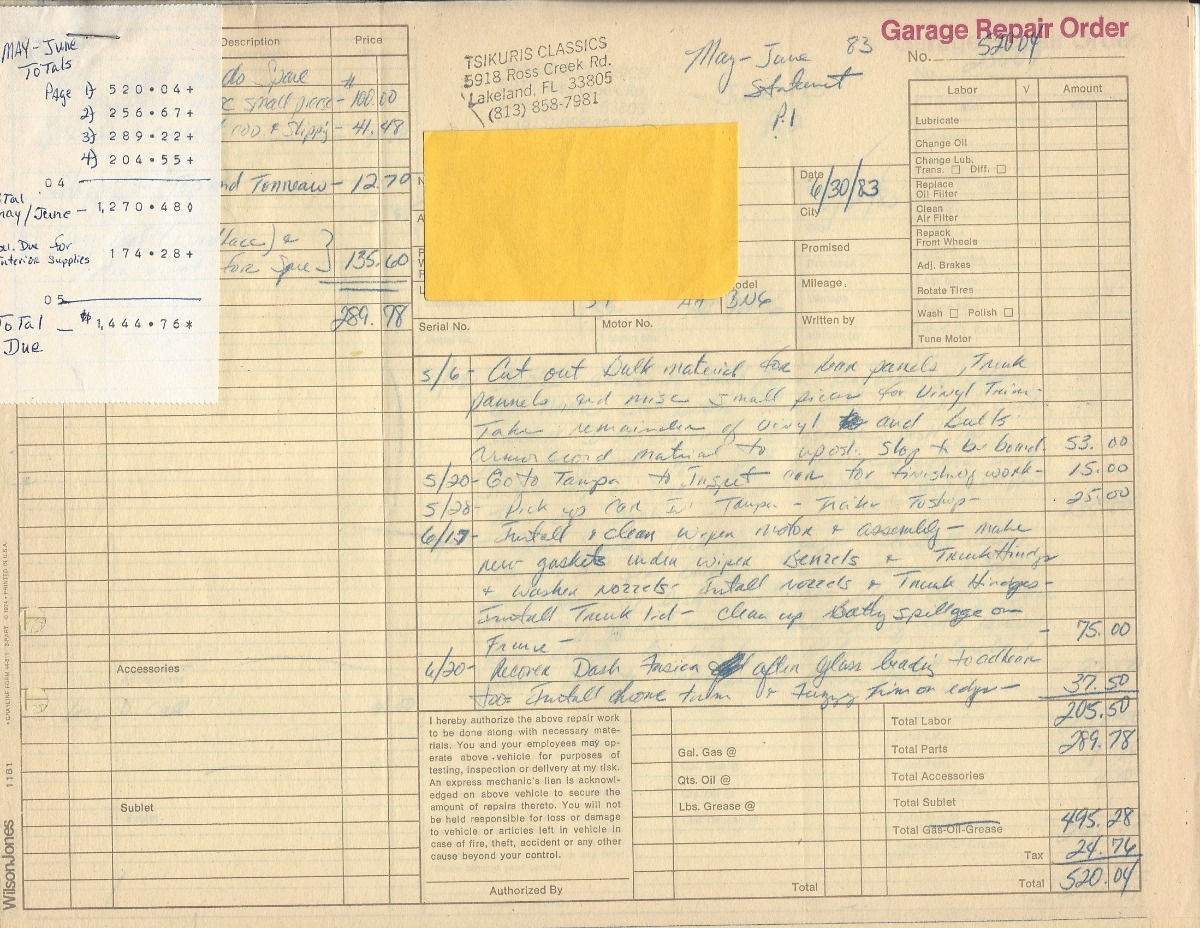 MAY-June
ToTals
Page 1) 520.04+
2) 256.67+
3) 289.22+
4) 204.55+
04
May/June - 1,270.48◊
Due for
Interior Supplies 174.28+
05
ToTal _ $1,444.76*
Due
Description Price
do Spare $
small piece - 100.00
& Shipp'g - 41.48
nd Tonneau - 12.70
for Spare } 135.60
289.78
TSIKURIS CLASSICS
5918 Ross Creek Rd.
Lakeland, FL 33805
(813) 858-7981
May-June 83
Statement
P.1
Garage Repair Order
No. 520 04
Date 6/30/83
City
Promised
Mileage.
Written by
BN6
Serial No.
Motor No.
Labor √ Amount
Lubricate
Change Oil
Change Lub.
Trans. □ Diff. □
Replace
Oil Filter
Clean
Air Filter
Repack
Front Wheels
Adj. Brakes
Rotate Tires
Wash □ Polish □
Tune Motor
5/6- Cut out Bulk material for rear panels, Trunk
pannels, and misc small pieces for Vinyl Trim-
Take remainder of vinyl and Bulk
material to upost. Shop to be bound. 53.00
5/20- Go to Tampa to Inspect car for finishing work- 15.00
5/28- Pick up car in Tampa - Trailer 25.00
6/17- Install & clean wiper motor & assembly - make
new gaskets under wiper Benzels & Trunk Hinges
& washer nozzels- Install nozzels & Trunk Hindges-
Install Trunk lid - clean up Battry spillage on
Frame - - 75.00
6/20- Recover Dash after glass beading to adhear
too- Install chrome trim & Fuzzy Trim on edge- 37.50
Accessories
Sublet
I hereby authorize the above repair work
to be done along with necessary mate-
rials. You and your employees may op-
erate above vehicle for purposes of
testing, inspection or delivery at my risk.
An express mechanic's lien is acknowl-
edged on above vehicle to secure the
amount of repairs thereto. You will not
be held responsible for loss or damage
to vehicle or articles left in vehicle in
case of fire, theft, accident or any other
cause beyond your control.
Authorized By
Gal. Gas @
Qts. Oil @
Lbs. Grease @
Total
Total Labor 205.50
Total Parts 289.78
Total Accessories
Total Sublet
Total Gas-Oil-Grease 495.28
Tax 24.76
Total 520.04
WilsonJones 1181